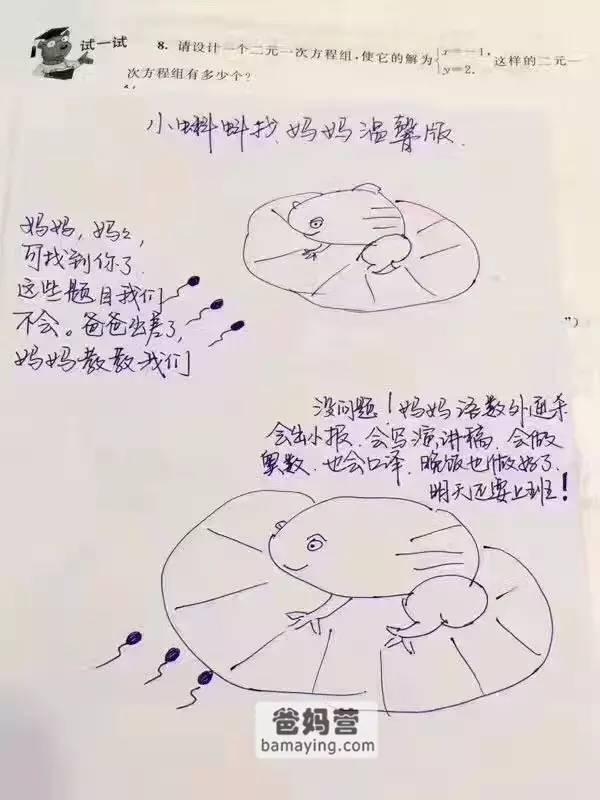 试一试
8. 请设计一个二元一次方程组,使它的解为{x=-1, y=2. 这样的二元一
次方程组有多少个?
小蝌蚪找妈妈温馨版.
妈妈,妈妈,
可找到你了.
这些题目我们
不会。爸爸出差了,
妈妈教教我们
”)
没问题!妈妈语数外通杀
会出小报.会写演讲稿.会做
奥数.也会口译.晚饭也做好了.
明天还要上班!
爸妈营
bamaying.com